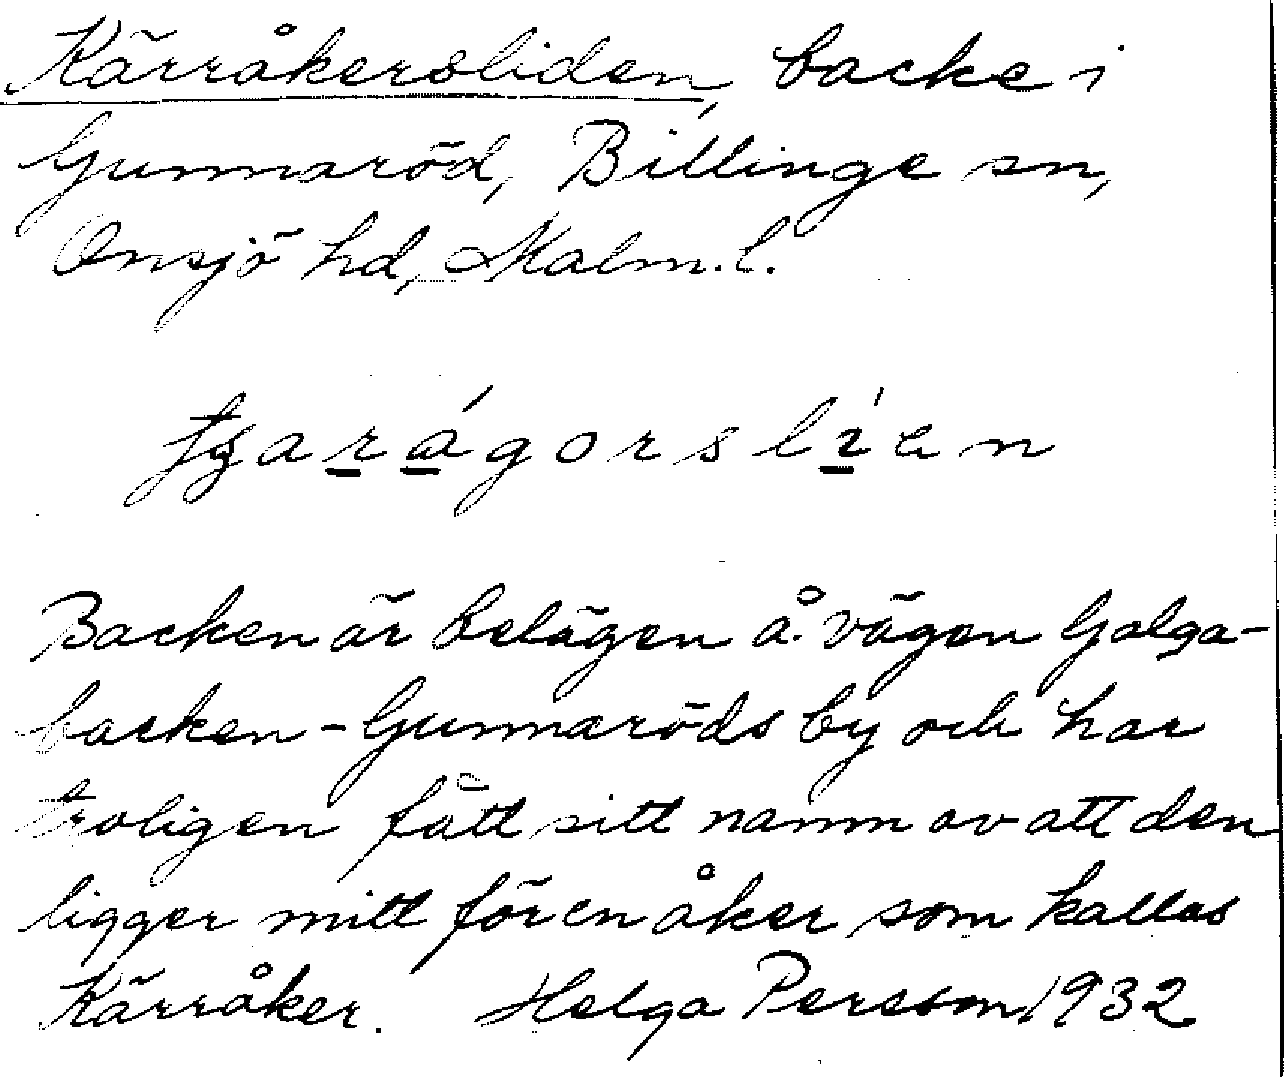 Kärråkersliden, backe i
Gunnaröd, Billinge sn,
Onsjö hd, Malm. l.
tʂarágorslíen
Backen är belägen å vägen Galga-
backen - Gunnaröds by och har
troligen fått sitt namn av att den
ligger mitt för en åker som kallas
Kärråker. Helga Persson 1932